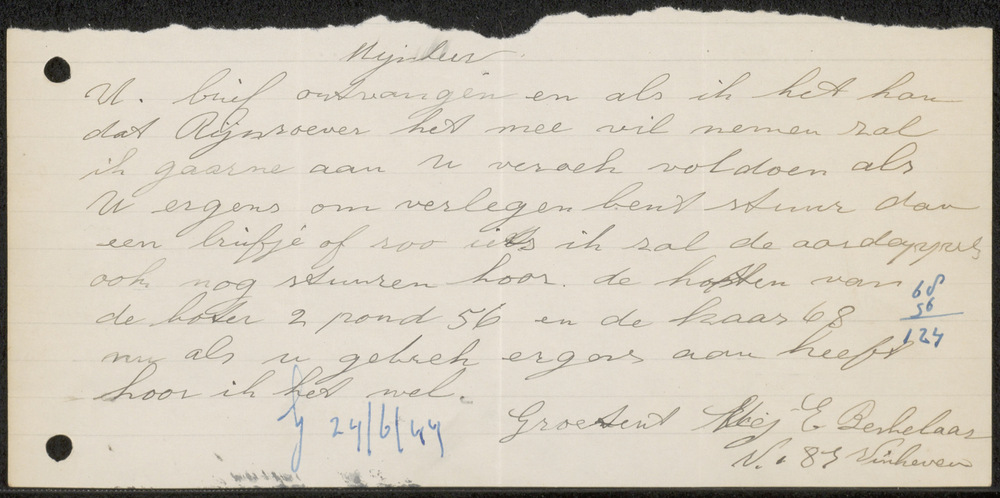 Mynheer
U. brief ontvangen en als ik het kan
dat Rijnsoever het mee wil nemen zal
ik gaarne aan u versoek voldoen als
U ergens om verlegen bent stuur dan
een briefje of zoo iets ik zal de aardappels
ook nog stuuren hoor. de kosten van
de boter 2 pond 56 en de kaas 68
68
56
124
nu als u gebrek ergens aan heeft
hoor ik het wel.
24/6/44
Groetent E Berkelaar
N. 83 Vinkeveen